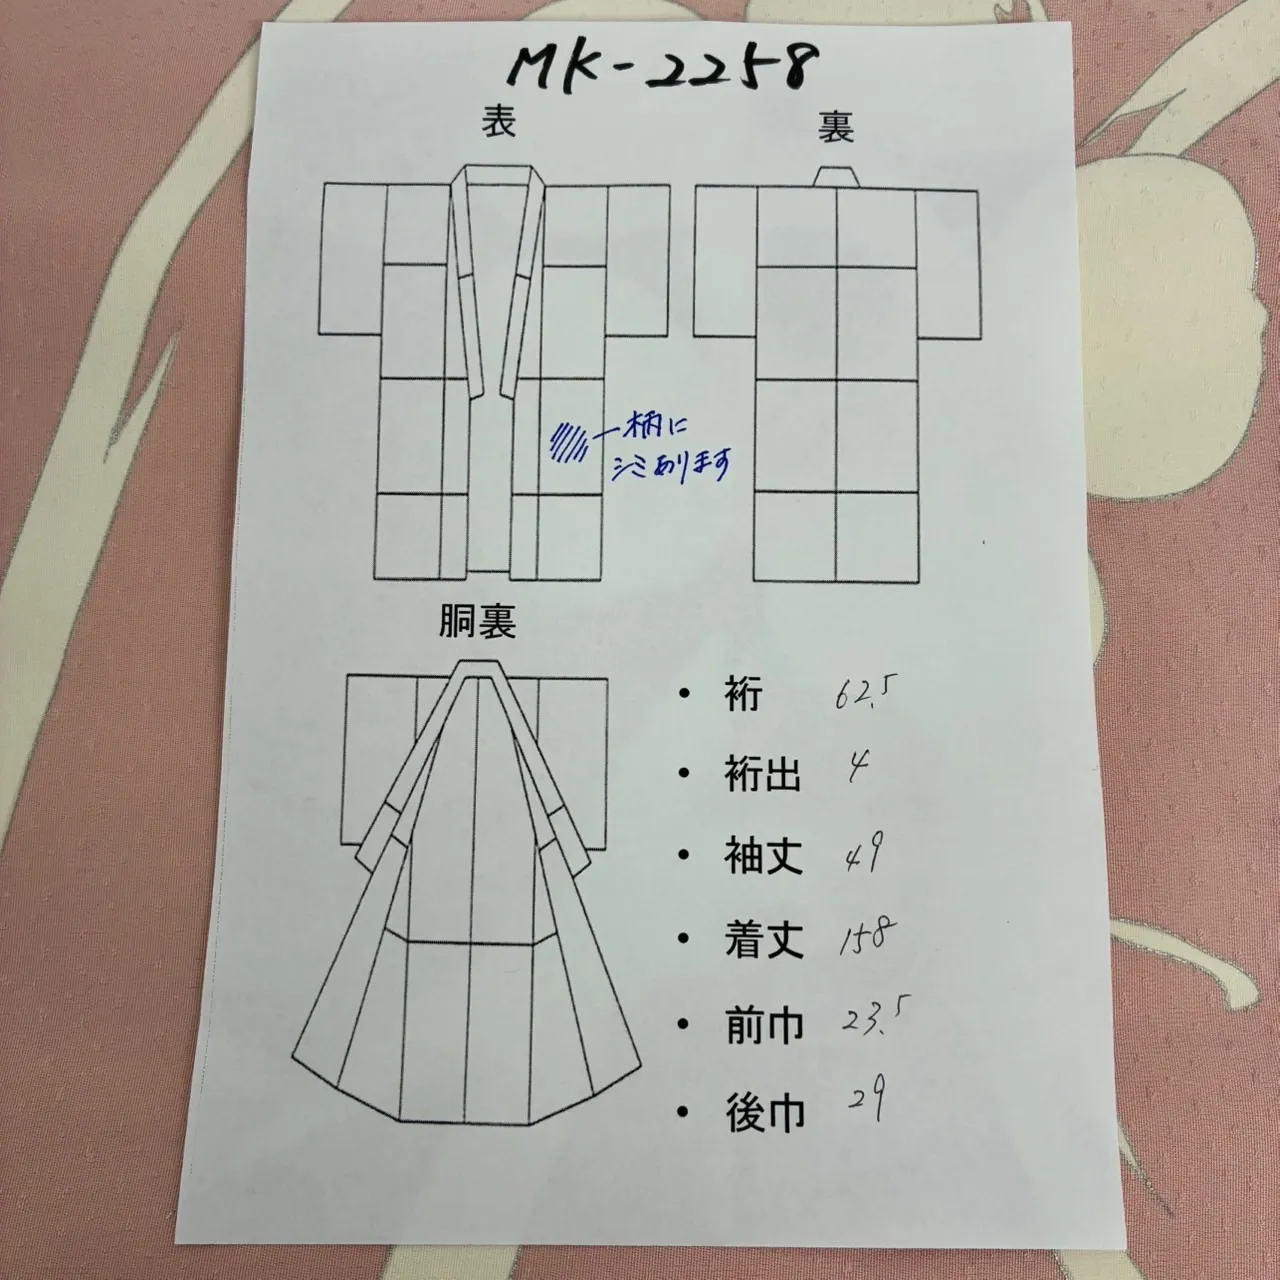 MK-2258
表
裏
柄に
シミあります
胴裏
・ 裄 62.5
・ 裄出 4
・ 袖丈 49
・ 着丈 158
・ 前巾 23.5
・ 後巾 29